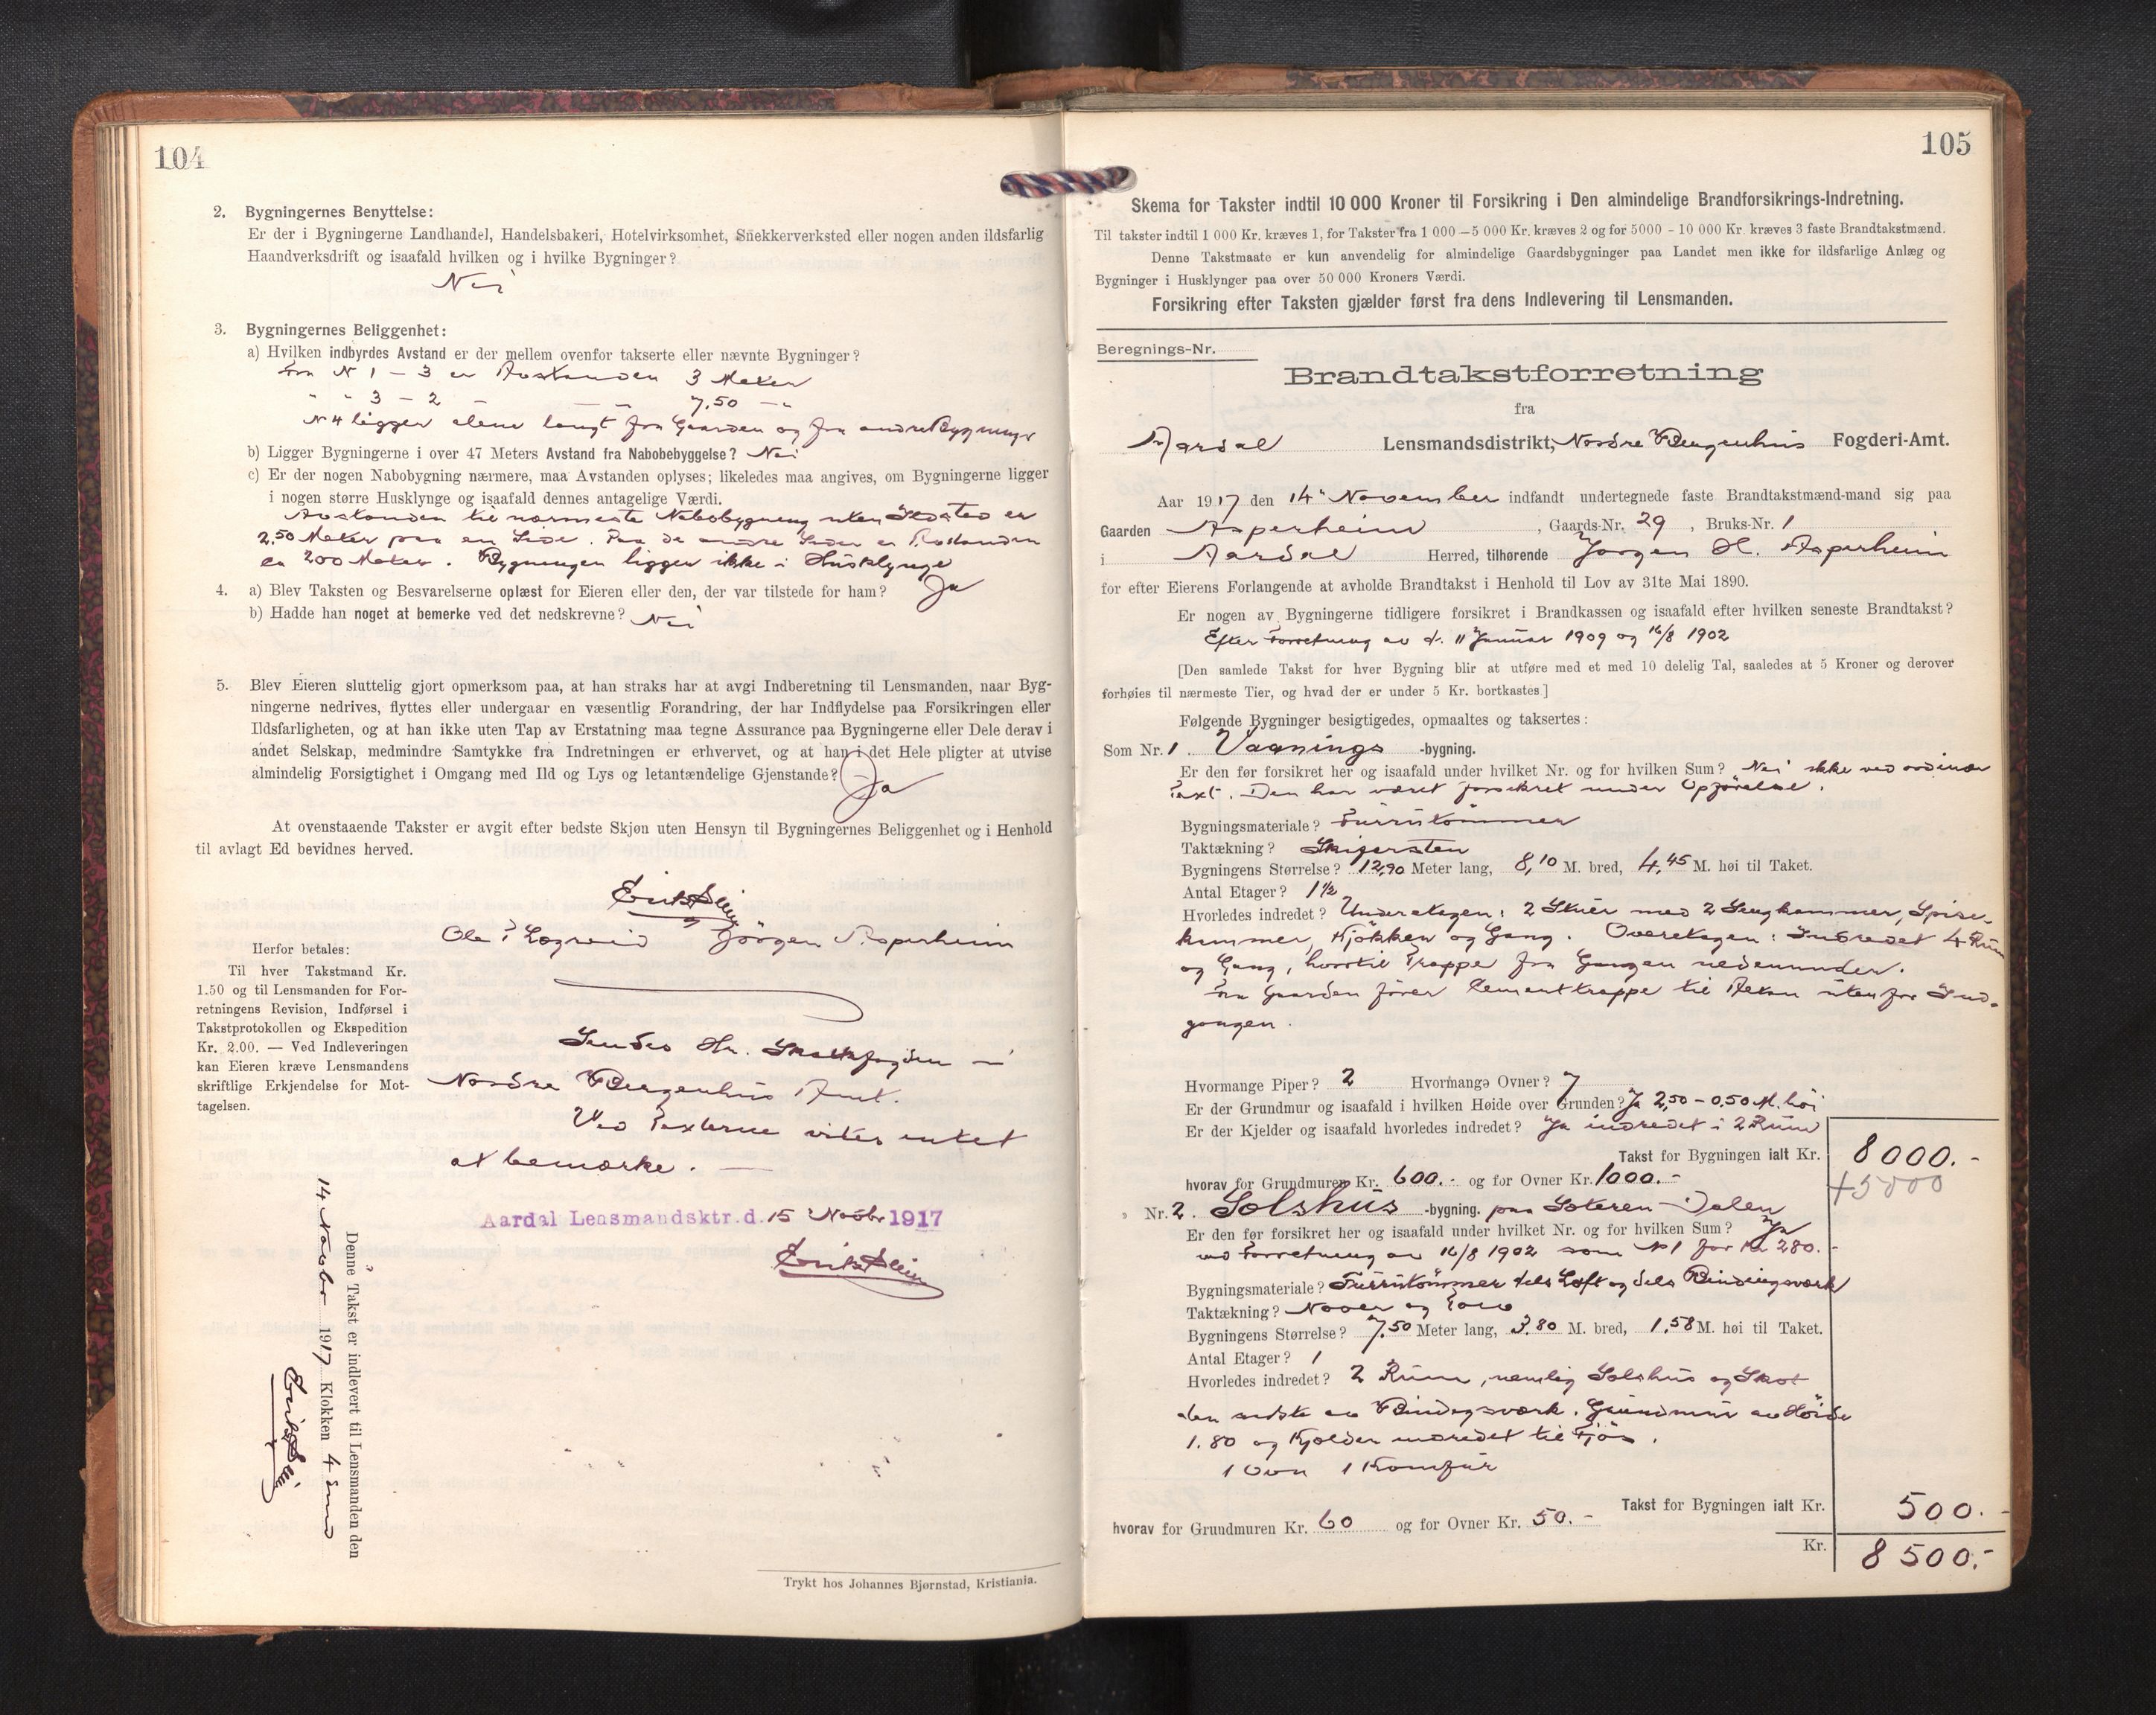 104
2. Bygningernes Benyttelse:
Er der i Bygningerne Landhandel, Handelsbakeri, Hotelvirksomhet, Snekkerverksted eller nogen anden ildsfarlig
Haandverksdrift og isaafald hvilken og i hvilke Bygninger?
Nei
3. Bygningernes Beliggenhet:
a) Hvilken indbyrdes Avstand er der mellem ovenfor takserte eller nævnte Bygninger?
Fra N 1 – 3 er Avstanden 3 Meter
" " 3 – 2 – — 7.50 — "
N 4 ligger alene langt fra Gaarden og fra andre Bygninger
b) Ligger Bygningerne i over 47 Meters Avstand fra Nabobebyggelse? Nei
c) Er der nogen Nabobygning nærmere, maa Avstanden oplyses; likeledes maa angives, om Bygningerne ligger
i nogen større Husklynge og isaafald dennes antagelige Værdi.
Avstanden til nærmeste Nabobygning uten Ildsted er
2.50 Meter paa en Side. Paa de andre Sider er Avstanden
ca 200 Meter. Bygningen ligger ikke i Husklynge
4. a) Blev Taksten og Besvarelserne oplæst for Eieren eller den, der var tilstede for ham? Ja
b) Hadde han noget at bemerke ved det nedskrevne? Nei
5. Blev Eieren sluttelig gjort opmerksom paa, at han straks har at avgi Indberetning til Lensmanden, naar Byg-
ningerne nedrives, flyttes eller undergaar en væsentlig Forandring, der har Indflydelse paa Forsikringen eller
Ildsfarligheten, og at han ikke uten Tap av Erstatning maa tegne Assurance paa Bygningerne eller Dele derav i
andet Selskap, medmindre Samtykke fra Indretningen er erhvervet, og at han i det Hele pligter at utvise
almindelig Forsigtighet i Omgang med Ild og Lys og letantændelige Gjenstande? Ja
At ovenstaaende Takster er avgit efter bedste Skjøn uten Hensyn til Bygningernes Beliggenhet og i Henhold
til avlagt Ed bevidnes herved.
Ole Jørgen Asperheim
Herfor betales:
Til hver Takstmand Kr.
1.50 og til Lensmanden for For-
retningens Revision, Indførsel i
Takstprotokollen og Ekspedition
Kr. 2.00. — Ved Indleveringen
kan Eieren kræve Lensmandens
skriftlige Erkjendelse for Mot-
tagelsen.
Sendes Hr. Skattefogden i
Nordre Bergenhus Amt.
Ved Taxterne vites intet
at bemærke. —
Aardal Lensmandsktr. d. 15 Novbr 1917
Denne Takst er indlevert til Lensmanden den
14 Novbr 1917 Klokken 4 Emd
Trykt hos Johannes Bjørnstad, Kristiania.
105
Skema for Takster indtil 10 000 Kroner til Forsikring i Den almindelige Brandforsikrings-Indretning.
Til takster indtil 1 000 Kr. kræves 1, for Takster fra 1 000 — 5 000 Kr. kræves 2 og for 5000 - 10 000 Kr. kræves 3 faste Brandtakstmænd.
Denne Takstmaate er kun anvendelig for almindelige Gaardsbygninger paa Landet men ikke for ildsfarlige Anlæg og
Bygninger i Husklynger paa over 50 000 Kroners Værdi.
Forsikring efter Taksten gjælder først fra dens Indlevering til Lensmanden.
Beregnings-Nr.
Brandtakstforretning
fra
Aardal Lensmandsdistrikt, Nordre Bergenhus Fogderi-Amt.
Aar 1917 den 14 November indfandt undertegnede faste Brandtakstmænd-mand sig paa
Gaarden Asperheim, Gaards-Nr. 29, Bruks-Nr. 1
i Aardal Herred, tilhørende Jørgen H. Asperheim
for efter Eierens Forlangende at avholde Brandtakst i Henhold til Lov av 31te Mai 1890.
Er nogen av Bygningerne tidligere forsikret i Brandkassen og isaafald efter hvilken seneste Brandtakst?
Efter Forretning av d. 11 Januar 1909 og 16/8 1902
[Den samlede Takst for hver Bygning blir at utføre med et med 10 delelig Tal, saaledes at 5 Kroner og derover
forhøies til nærmeste Tier, og hvad der er under 5 Kr. bortkastes.]
Følgende Bygninger besigtigedes, opmaaltes og taksertes:
Som Nr. 1. Vaanings -bygning.
Er den før forsikret her og isaafald under hvilket Nr. og for hvilken Sum? Nei ikke ved ordinær
Taxt. Den har været forsikret under Opførelse.
Bygningsmateriale? Furutømmer
Taktækning? Skifersten
Bygningens Størrelse? 12,90 Meter lang, 8,10 M. bred, 4,45 M. høi til Taket.
Antal Etager? 1 1/2
Hvorledes indredet? Underetagen: 2 Stuer med 2 Sengkammer, Spise-
kammer, Kjøkken og Gang. Overetagen: Indredet 4 Rum
og Gang, hvortil Trappe fra Gangen nedenunder.
Fra Gaarden fører Cementtrappe til Altan utenfor Ind-
gangen.
Hvormange Piper? 2 Hvormange Ovner? 7
Er der Grundmur og isaafald i hvilken Høide over Grunden? Ja 2,50 – 0,50 M. høi
Er der Kjelder og isaafald hvorledes indredet? Ja indredet i 2 Rum
Takst for Bygningen ialt Kr. 8000.-
hvorav for Grundmuren Kr. 600.- og for Ovner Kr. 1000.-
+5000
" Nr. 2. Selshus -bygning. paa Stølen Dalen
Er den før forsikret her og isaafald under hvilket Nr. og for hvilken Sum? Ja
ved Forretning av 16/8 1902 som N 1 for Kr 280.-
Bygningsmateriale? Furutømmer dels Loft og dels Bindingsværk
Taktækning? Næver og Torv
Bygningens Størrelse? 7.50 Meter lang, 3.80 M. bred, 1,58 M. høi til Taket.
Antal Etager? 1
Hvorledes indredet? 2 Rum, nemlig Selshus og Skot
den sidste av Bindingsværk. Grundmur av Høide
1.80 og Kjelder indredet til Fjøs.
1 Ovn 1 Komfur
Takst for Bygningen ialt Kr. 500.-
hvorav for Grundmuren Kr. 60 og for Ovner Kr. 50.-
Kr. 8500.-